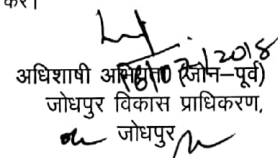 करें।
18/07/2018
अधिशाषी अभियन्ता (जोन-पूर्व)
जोधपुर विकास प्राधिकरण,
जोधपुर